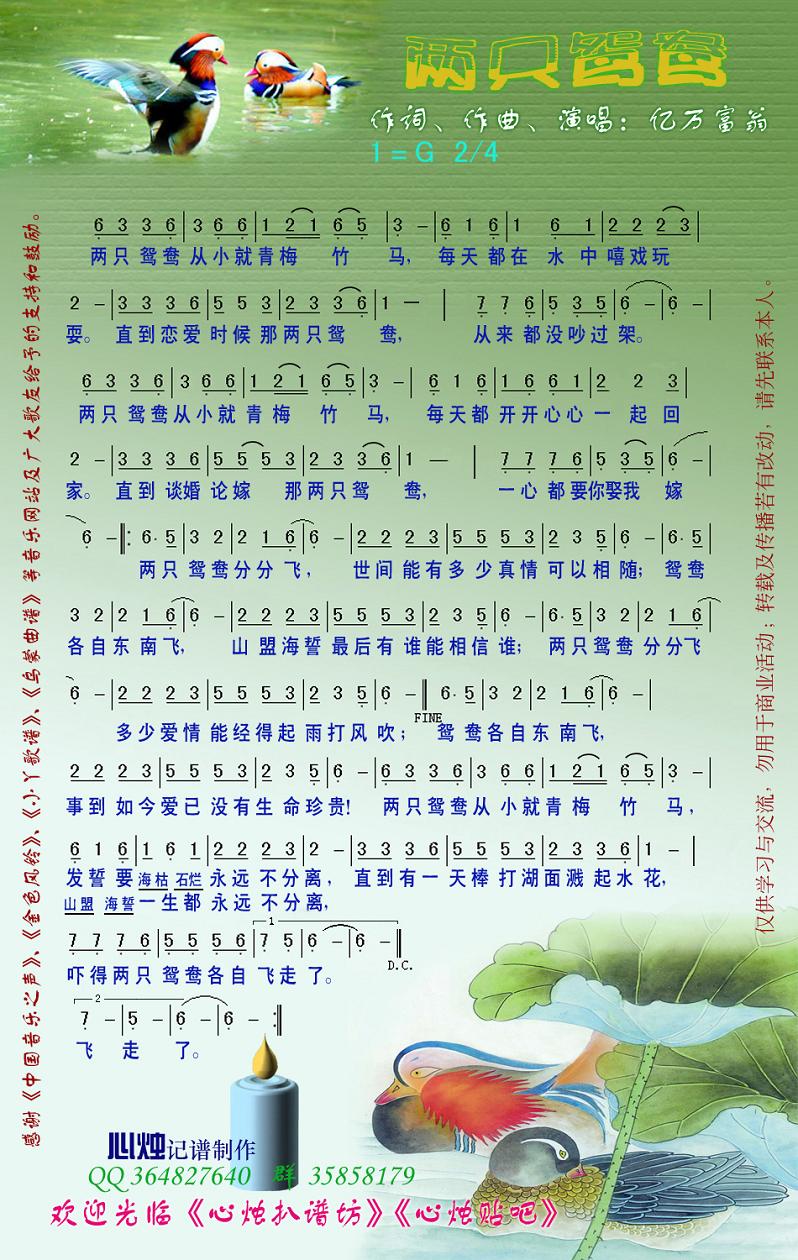 两只鸳鸯
作词、作曲、演唱：亿万富翁
1=G 2/4
6 3 3 6 | 3 6 6 | 1 2 1 6 5 | 3 - | 6 1 6 | 1 6 1 | 2 2 2 3 |
两只 鸳鸯 从小就青梅 竹 马, 每天 都在 水 中 嘻戏玩
2 - | 3 3 3 6 | 5 5 3 | 2 3 3 6 | 1 — | 7 7 6 | 5 3 5 | 6 - | 6 - |
耍。 直到恋爱 时候 那两只鸳 鸯, 从来 都没吵过 架。
6 3 3 6 | 3 6 6 | 1 2 1 6 5 | 3 - | 6 1 6 | 1 6 6 1 | 2 2 3 |
两只 鸳鸯从小就 青梅 竹 马, 每天都 开开心心 一 起 回
2 - | 3 3 3 6 | 5 5 5 3 | 2 3 3 6 | 1 — | 7 7 7 6 | 5 3 5 | 6 - |
家。 直到 谈婚 论嫁 那两只鸳 鸯, 一心 都要你娶我 嫁
6 - ‖: 6· 5 | 3 2 | 2 1 6 | 6 - | 2 2 2 3 | 5 5 5 3 | 2 3 5 | 6 - | 6· 5 |
两只 鸳鸯分分 飞, 世间 能有多 少真情 可以相 随; 鸳鸯
3 2 | 2 1 6 | 6 - | 2 2 2 3 | 5 5 5 3 | 2 3 5 | 6 - | 6· 5 | 3 2 | 2 1 6 |
各自东 南飞, 山 盟海誓 最后有 谁能相信 谁; 两只鸳鸯 分分飞
6 - | 2 2 2 3 | 5 5 5 3 | 2 3 5 | 6 - ‖ 6· 5 | 3 2 | 2 1 6 | 6 - |
FINE
多少爱情 能经得起 雨打风 吹; 鸳 鸯各自东 南飞,
2 2 2 3 | 5 5 5 3 | 2 3 5 | 6 - | 6 3 3 6 | 3 6 6 | 1 2 1 6 5 | 3 - |
事到 如今爱已 没有生 命珍贵! 两只鸳鸯从 小就青 梅 竹 马,
6 1 6 | 1 6 1 | 2 2 2 3 | 2 - | 3 3 3 6 | 5 5 5 3 | 2 3 3 6 | 1 - |
发誓 要 海枯 石烂 永远 不分离, 直到有一 天棒 打湖面溅 起水 花,
山盟 海誓一生都 永远 不分离,
7 7 7 6 | 5 5 5 6 | 1 7 5 | 6 - | 6 - ‖
D.C.
吓得两只 鸳鸯各自 飞走 了。
2 7 - | 5 - | 6 - | 6 - :‖
飞 走 了。
心烛记谱制作
QQ 364827640 群 35858179
欢迎光临《心烛扒谱坊》《心烛贴吧》
感谢《中国音乐之声》、《金色风铃》、《小丫歌谱》、《乌蒙曲谱》等音乐网站及广大歌友给予的支持和鼓励。
仅供学习与交流，勿用于商业活动；转载及传播若有改动，请先联系本人。